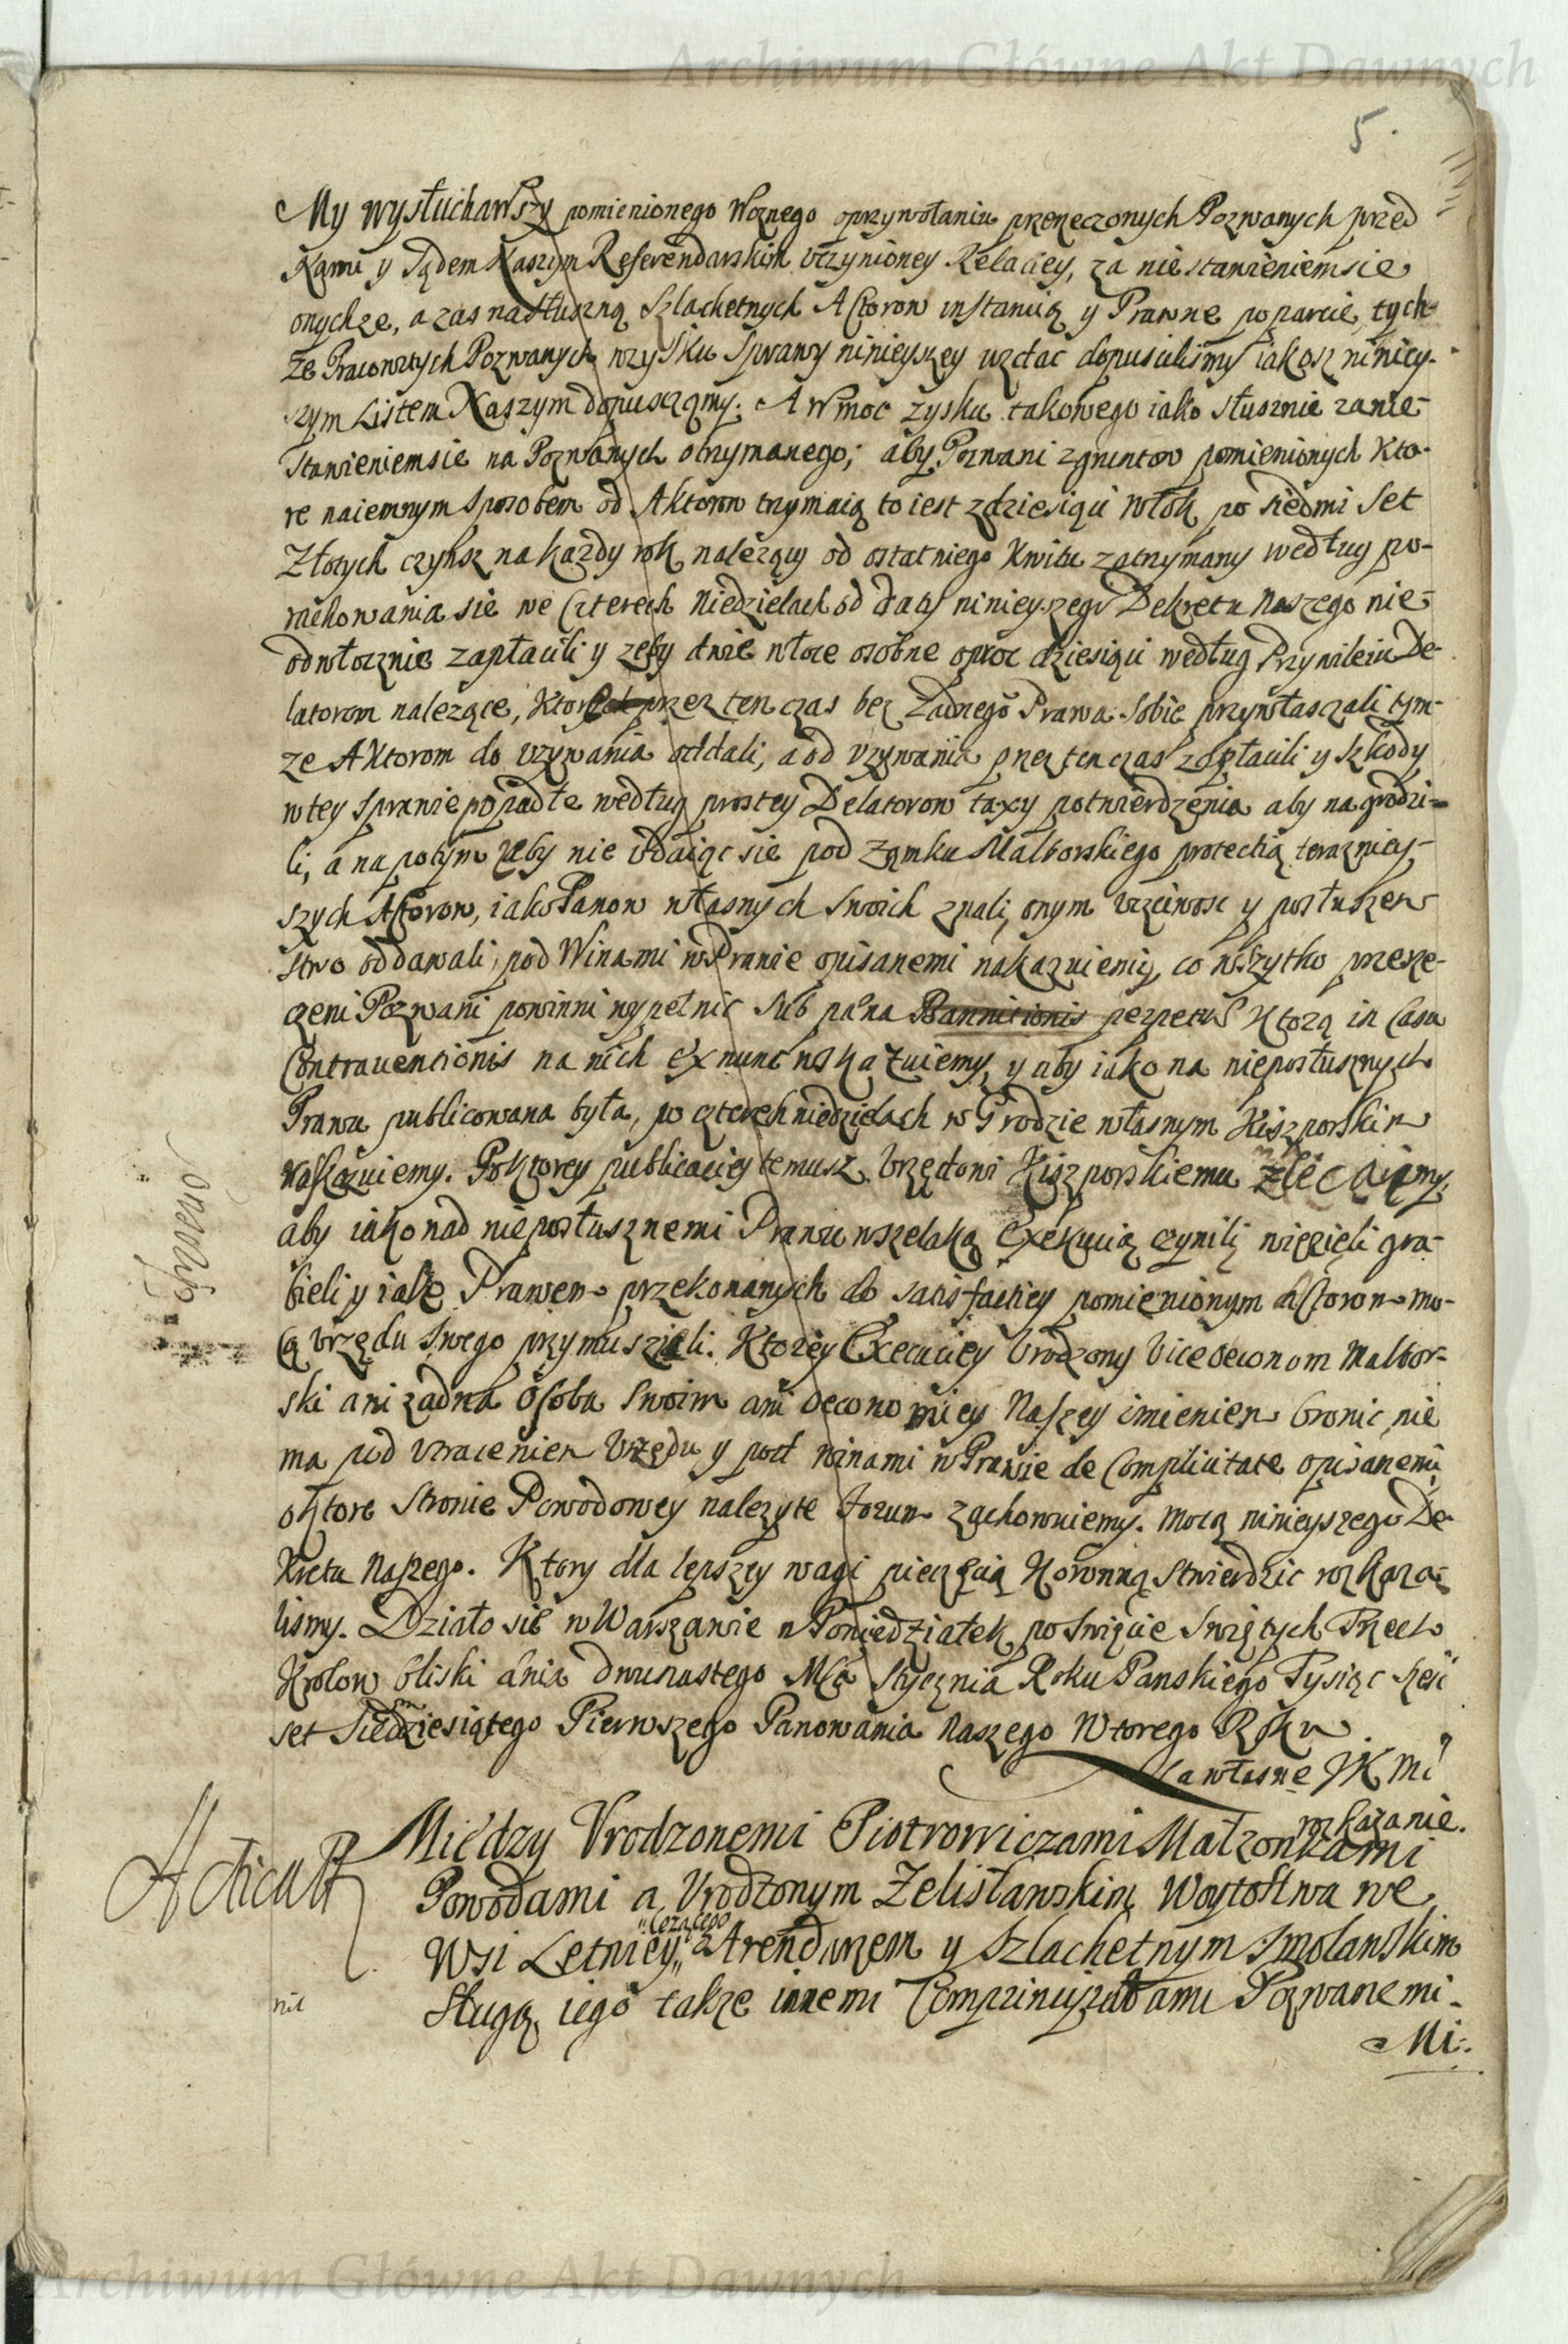 Archiwum Główne Akt Dawnych
5.
My wysłuchawszy pomienionego Woznego oprzywołaniu przerzeczonych Pozwanych przed
Nami y Sądem Naszym Referendarskim vczynioney Relaciey, za niestawieniemsie
onychze, a zas nasłuszną Szlachetnych Actorow instancią y Prawne poparcie, tych-
ze Pracowitych Pozwanych wzysku Sprawy ninieyszey wzdac dopuscilismy iakosz niniey-
szym Listem Naszym dopusczamy. A w moc zysku takowego iako słusznie zanie-
stawieniemsie na Pozwanych otrzymanego; aby Pozwani zgruntow pomienionych kto-
re naiemnym sposobem od Aktorow trzymaią to iest zdziesiąci włok po siedmi set
Złotych czynsz na kazdy rok nalezący od ostatniego Kwitu zatrzymany według po-
rachowania sie we Czterech Niedzielach od daty ninieyszego Dekretu Naszego nie-
odwłocznie zapłacili y zeby dwie włoce osobne oprocz dziesiąci według Przywileiu De-
latorom nalezące, ktore przez ten czas bez zadnego Prawa sobie przywłasczali tym-
ze Aktorom do vzywania oddali, a od vzywania przez ten czas zapłacili y szkody
w tey sprawie popadłe według prostey Delatorow taxy potwierdzenia aby nagrodzi-
li, a napotym zeby nie vdaiąc sie pod Zamku Malborskiego protectią terazniey-
szych Actorow, iako Panow własnych swoich znali, onym vczciwosc y posłuszen-
stwo oddawali, pod Winami w Prawie opisanemi nakazuiemy, co wszytko przerze-
czeni Pozwani powinni wypełnic sub pæna Bannitionis perpetuæ ktorą in Casu
Contrauentionis na nich ex nunc wskazuiemy, y aby iako na nieposłusznych
Prawu publicowana była, po czterech niedzielach w Grodzie własnym Kiszporskim
naskazuiemy. Po ktorey publicaciey temusz Vrzędowi Kiszporskiemu zlecaiemy,
aby iako nad nieposłusznemi Prawu wszelaką exekucią czynili, więzieli gra-
bieli y iako Prawem przekonanych do satisfactiey pomienionym Actorom mo-
cą Vrzędu swego przymuszieli. Ktorey Executiey Vrodzony Viceoeconom Malbor-
ski ani zadna osoba swoim ani oeconomiey Naszey imieniem bronic nie
ma pod vtraceniem Vrzędu y pod winami w Prawie de Complicitate opisanemi
oktore Stronie Powodowey nalezyte forum zachowuiemy. Mocą ninieyszego De-
kretu Naszego. Ktory dla lepszey wagi pieczęcią Koronną stwierdzic rozkaza-
lismy. Działo sie w Warszawie w Poniedziałek po Swięcie Swiętych Trzech
Krolow bliski dnia dwunastego Mca Stycznia Roku Panskiego Tysiąc szesc
set Siedmdziesiątego Pierwszego Panowania Naszego Wtorego Roku
Na własne JK Mci
rozkazanie.
Między Vrodzonemi Piotrowiczami Małzonkami
Powodami a Vrodzonym Zelisławskim Woytostwa we
Wsi Letniey Arendarzem y Szlachetnym Smolanskim
Sługą iego takze innemi Comprincipałami Pozwanemi.
nil
Mi.
Archiwum Główne Akt Dawnych